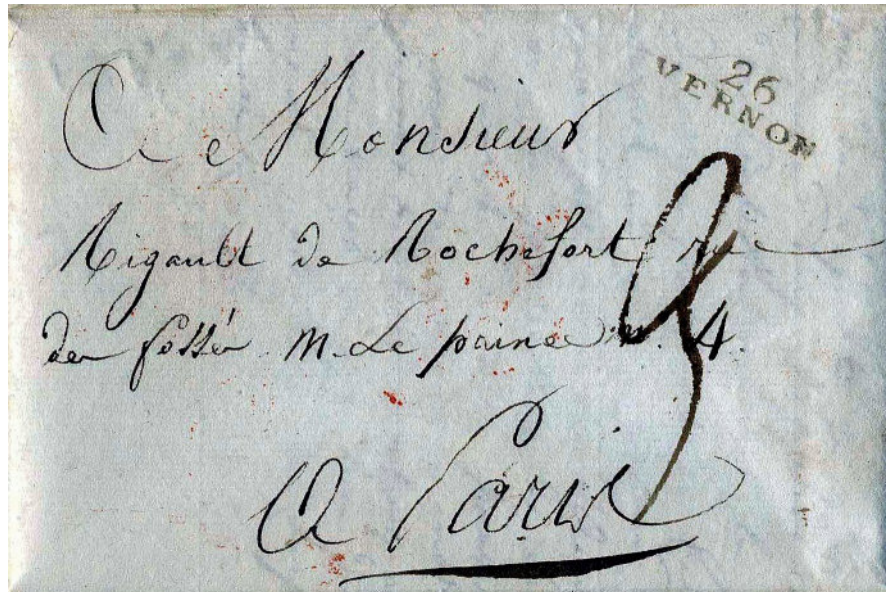 26
VERNON
A Monsieur
Rigault de Rochefort rue
des fossés M. Le prince n. 4.
A Paris